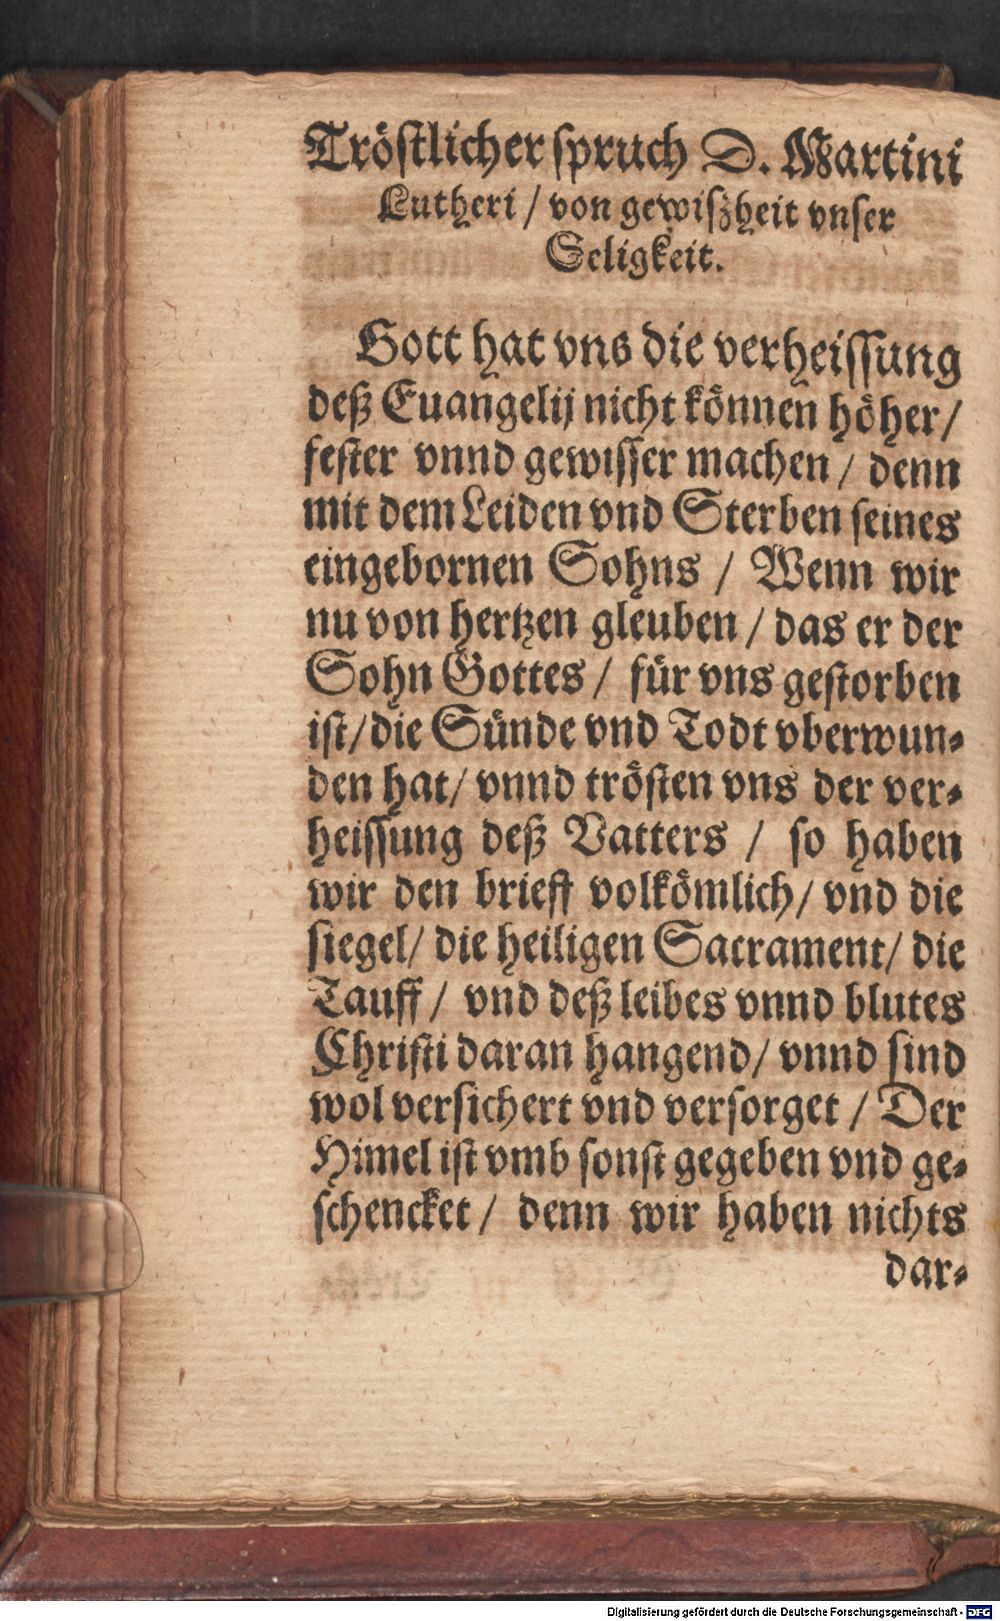 Tröstlicher spruch D. Martini
Lutheri / von gewißheit vnser
Seligkeit.
Gott hat vns die verheissung
deß Euangelij nicht können höher /
fester vnnd gewisser machen / denn
mit dem Leiden vnd Sterben seines
eingebornen Sohns / Wenn wir
nu von hertzen gleuben / das er der
Sohn Gottes / für vns gestorben
ist / die Sünde vnd Todt vberwun-
den hat / vnnd trösten vns der ver-
heissung deß Vatters / so haben
wir den brieff volkömlich / vnd die
siegel / die heiligen Sacrament / die
Tauff / vnd deß leibes vnnd blutes
Christi daran hangend / vnnd sind
wol versichert vnd versorget / Der
Himel ist vmb sonst gegeben vnd ge-
schencket / denn wir haben nichts
dar-
Digitalisierung gefördert durch die Deutsche Forschungsgemeinschaft - DFG